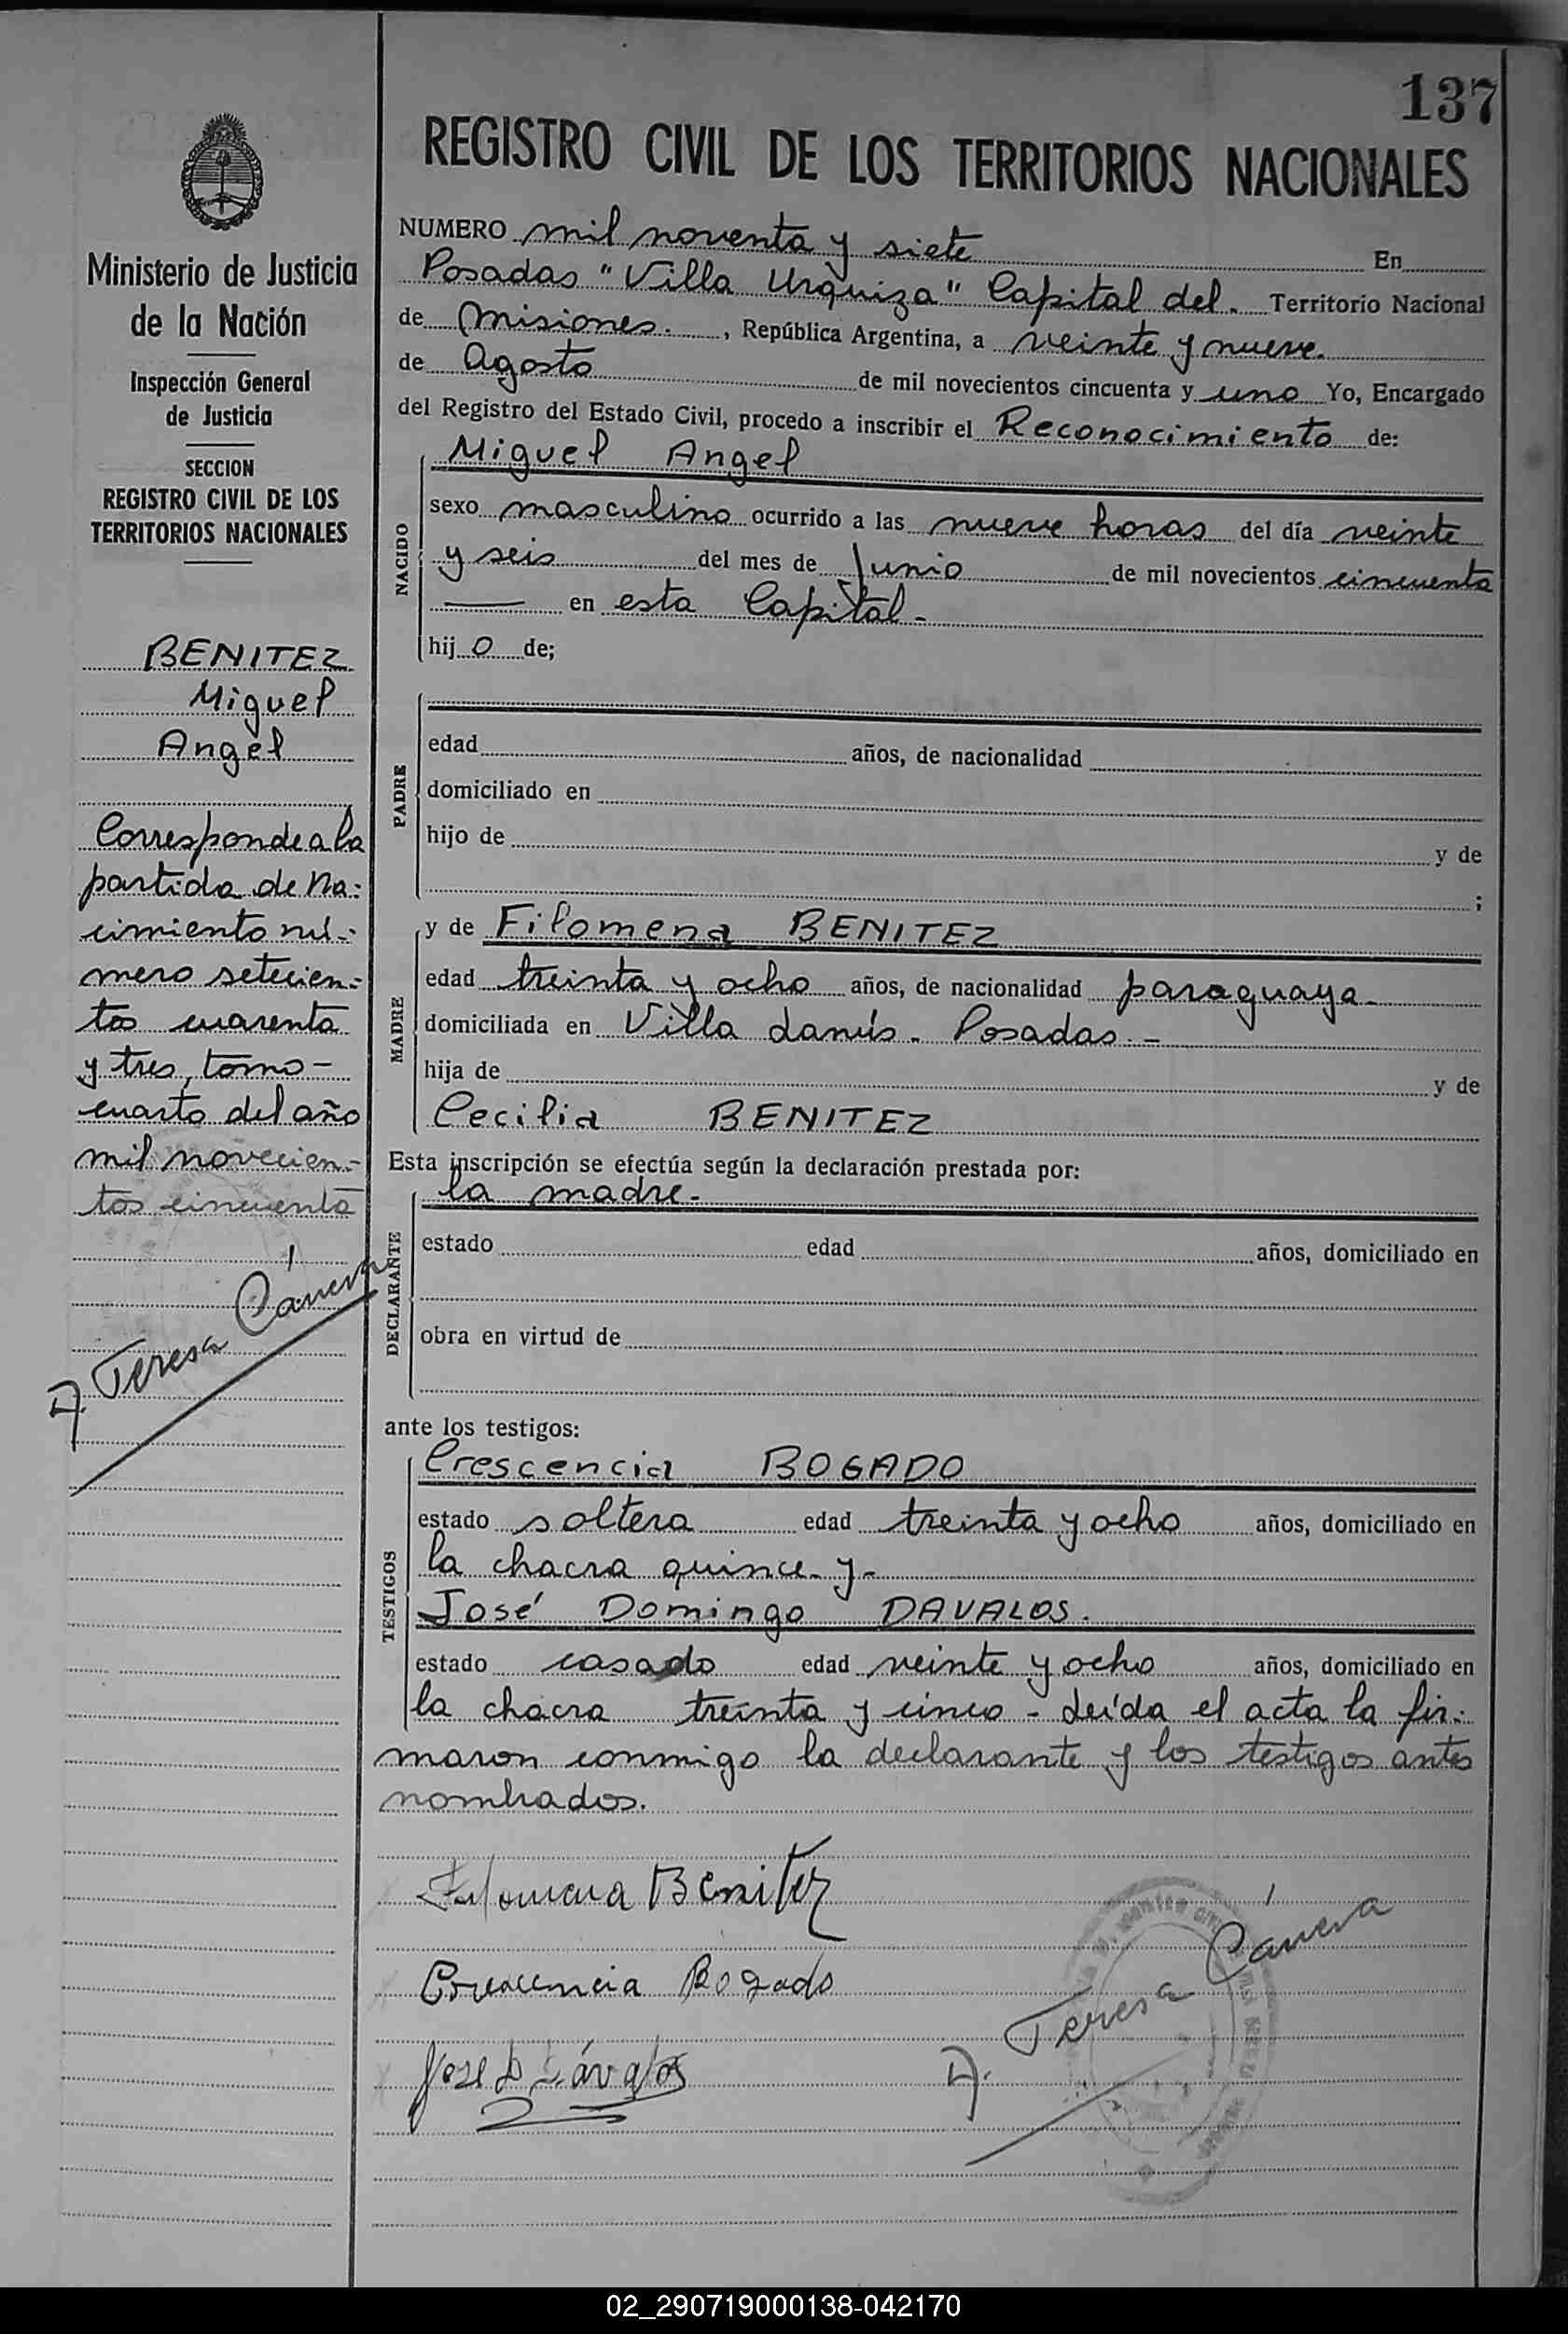 137
REGISTRO CIVIL DE LOS TERRITORIOS NACIONALES
Ministerio de Justicia
de la Nación
Inspección General
de Justicia
SECCION
REGISTRO CIVIL DE LOS
TERRITORIOS NACIONALES
BENITEZ
Miguel
Angel
Corresponde a la
partida de Na-
cimiento nú-
mero setecien-
tos cuarenta
y tres, tomo-
cuarto del año
mil novecien-
tos cincuenta
A. Teresa Cáneva
NUMERO mil noventa y siete En
Posadas "Villa Urquiza" Capital del. Territorio Nacional
de Misiones. , República Argentina, a veinte y nueve.
de Agosto de mil novecientos cincuenta y uno Yo, Encargado
del Registro del Estado Civil, procedo a inscribir el Reconocimiento de:
Miguel Angel
NACIDO
sexo masculino ocurrido a las nueve horas del día veinte
y seis del mes de Junio de mil novecientos cincuenta
— en esta Capital.-
hij o de;
PADRE
edad años, de nacionalidad
domiciliado en
hijo de y de
;
MADRE
y de Filomena BENITEZ
edad treinta y ocho años, de nacionalidad paraguaya.-
domiciliada en Villa Lanús. Posadas.-
hija de y de
Cecilia BENITEZ
Esta inscripción se efectúa según la declaración prestada por:
DECLARANTE
la madre.-
estado edad años, domiciliado en
obra en virtud de
ante los testigos:
TESTIGOS
Crescencia BOGADO
estado soltera edad treinta y ocho años, domiciliado en
la chacra quince y-
José Domingo DAVALOS.
estado casado edad veinte y ocho años, domiciliado en
la chacra treinta y cinco - Leída el acta la fir-
maron conmigo la declarante y los testigos antes
nombrados.
Filomena Benitez
Crescencia Bogado
José D Dávalos
A. Teresa Cáneva
02_290719000138-042170